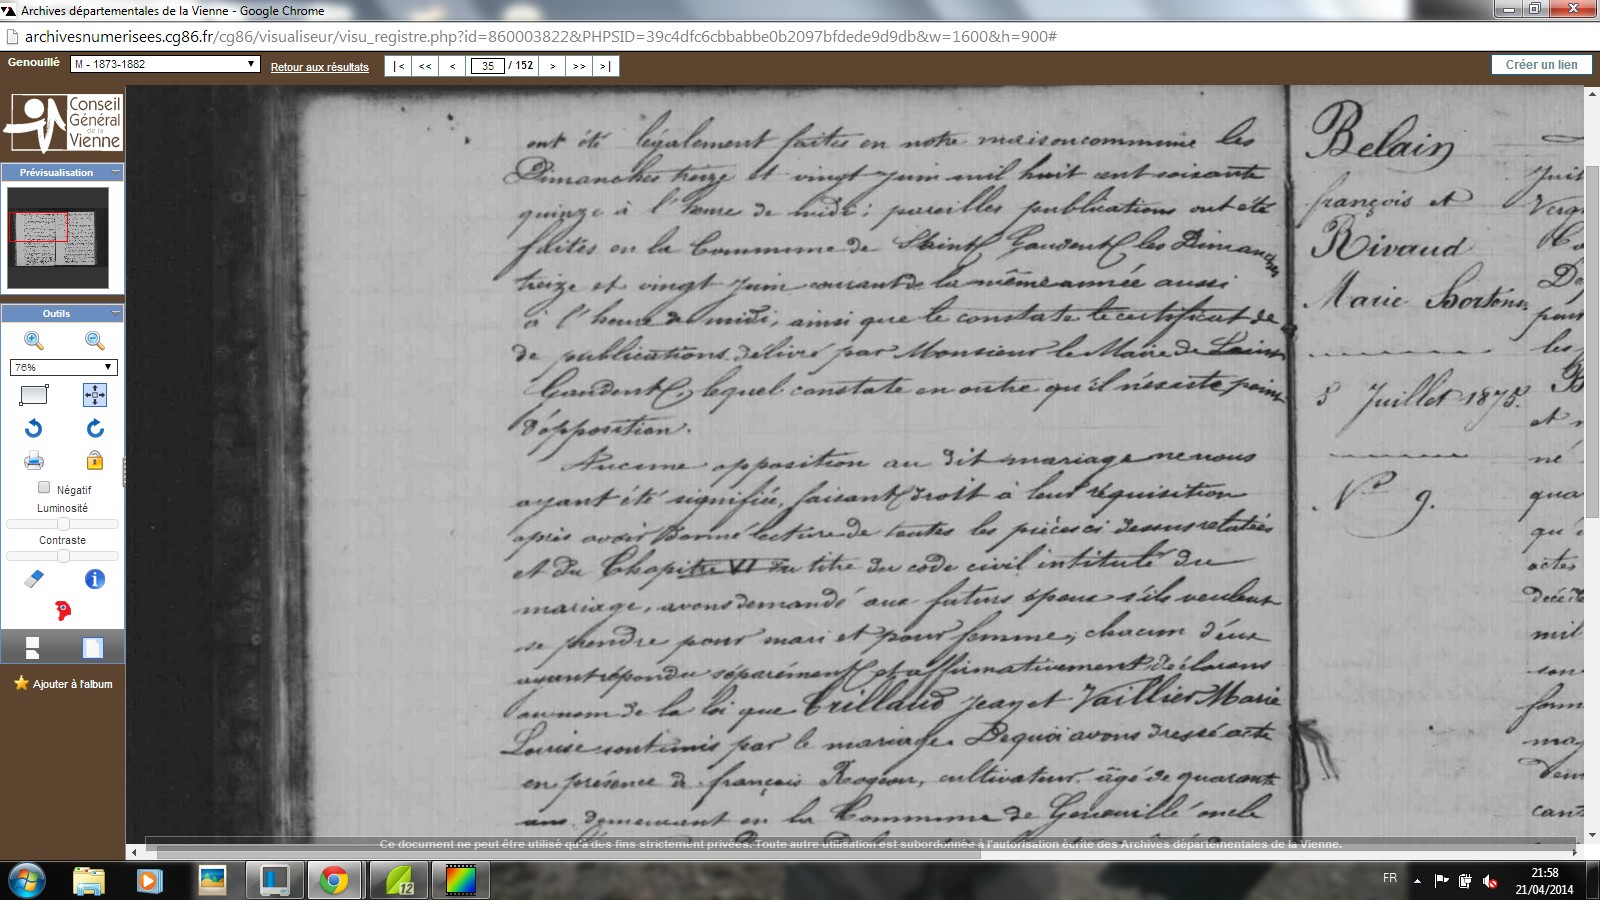 Archives départementales de la Vienne - Google Chrome
archivesnumerisees.cg86.fr/cg86/visualiseur/visu_registre.php?id=860003822&PHPSID=39c4dfc6cbbabbe0b2097bfdede9d9db&w=1600&h=900#
Genouillé M - 1873-1882 Retour aux résultats |< << < 35 / 152 > >> >| Créer un lien
Conseil
Général
de la
Vienne
Prévisualisation
Outils
76%
Négatif
Luminosité
Contraste
Ajouter à l'album
ont été légalement faites en notre maison commune les
Dimanches treize et vingt juin mil huit cent soixante
quinze à l'heure de midi; pareilles publications ont été
faites en la Commune de Saint Gaudent les Dimanches
treize et vingt juin courant de la même année aussi
à l'heure de midi, ainsi que le constate le certificat de
de publications délivré par Monsieur le Maire de Saint
Gaudent, lequel constate en outre qu'il n'existe point
d'opposition.
Aucune opposition au dit mariage ne nous
ayant été signifiée, faisant droit à leur réquisition
après avoir donné lecture de toutes les pièces ci dessus relatées
et du Chapitre VI du titre du code civil intitulé du
mariage, avons demandé aux futurs époux s'ils veulent
se prendre pour mari et pour femme; chacun d'eux
ayant répondu séparément et affirmativement, déclarons
au nom de la loi que Trillaud Jean et Vaillier Marie
Louise sont unis par le mariage. De quoi avons dressé acte
en présence de françois Rogeon, cultivateur âgé de quarante
ans demeurant en la Commune de Genouillé oncle
Belain
françois et
Rivaud
Marie Hortense
5 Juillet 1875.
N° 9.
Juil
Verg
De
pour
les
B
et
né
qua
qu'
actes
décéd
mil
son
form
ma
dem
can
Ce document ne peut être utilisé qu'à des fins strictement privées. Toute autre utilisation est subordonnée à l'autorisation écrite des Archives départementales de la Vienne.
12
FR
21:58
21/04/2014